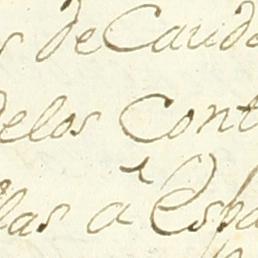 s de Caud
delos Cont
llas â Espa